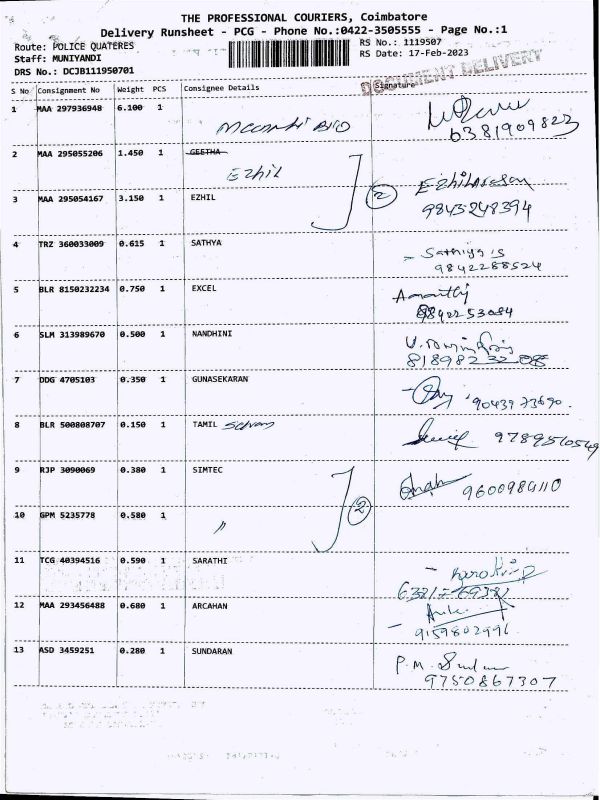 THE PROFESSIONAL COURIERS, Coimbatore
Delivery Runsheet - PCG - Phone No.:0422-3505555 - Page No.:1
Route: POLICE QUATERES
RS No.: 1119507
Staff: MUNIYANDI
RS Date: 17-Feb-2023
DRS No.: DCJB111950701
DOCUMENT DELIVERY
S No Consignment No Weight PCS Consignee Details Signature
1 MAA 297936948 6.100 1
6381909823
2 MAA 295055206 1.450 1 GEETHA
Ezhil
2
3 MAA 295054167 3.150 1 EZHIL Ezhilarasan
9843248394
4 TRZ 360033009 0.615 1 SATHYA - Sathiya s
9842288524
5 BLR 8150232234 0.750 1 EXCEL
6 SLM 313989670 0.500 1 NANDHINI
7 DDG 4705103 0.350 1 GUNASEKARAN
9043973690.
8 BLR 500808707 0.150 1 TAMIL Selvam
9789510549
9 RJP 3090069 0.380 1 SIMTEC
9600984110
2
10 GPM 5235778 0.580 1 "
11 TCG 40394516 0.590 1 SARATHI
12 MAA 293456488 0.680 1 ARCAHAN
9159802996
13 ASD 3459251 0.280 1 SUNDARAN P.M.
9750867307